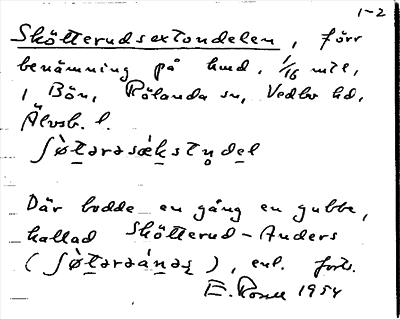 1-2
Skötterudsextondelen, förr
benämning på hmd. 1/16 mtl,
i Bön, Rölanda sn, Vedbo hd,
Älvsb. l.
ʃø̀tərəsækstn̥del
Där bodde en gång en gubbe,
kallad Skötterud-Anders
(ʃø̀tərəánəʂ), enl. förts.
1954